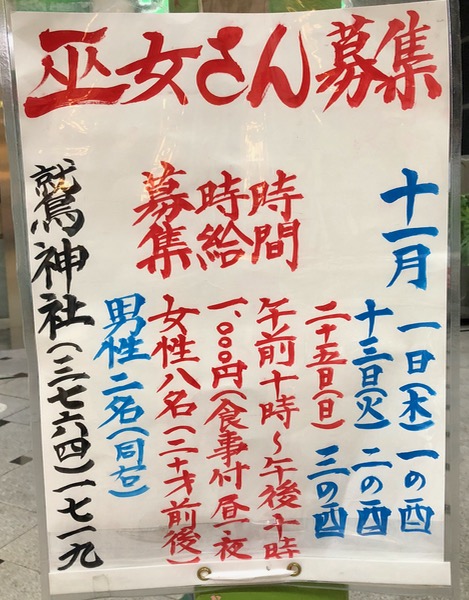 巫女さん募集
十一月 一日(木) 一の酉
十三日(火) 二の酉
二十五日(日) 三の酉
時間 午前十時～午後十時
時給 一、〇〇〇円(食事付 昼一夜
募集 女性八名(二十才前後)
男性二名(同右)
鷲神社(三七六四)一七一九